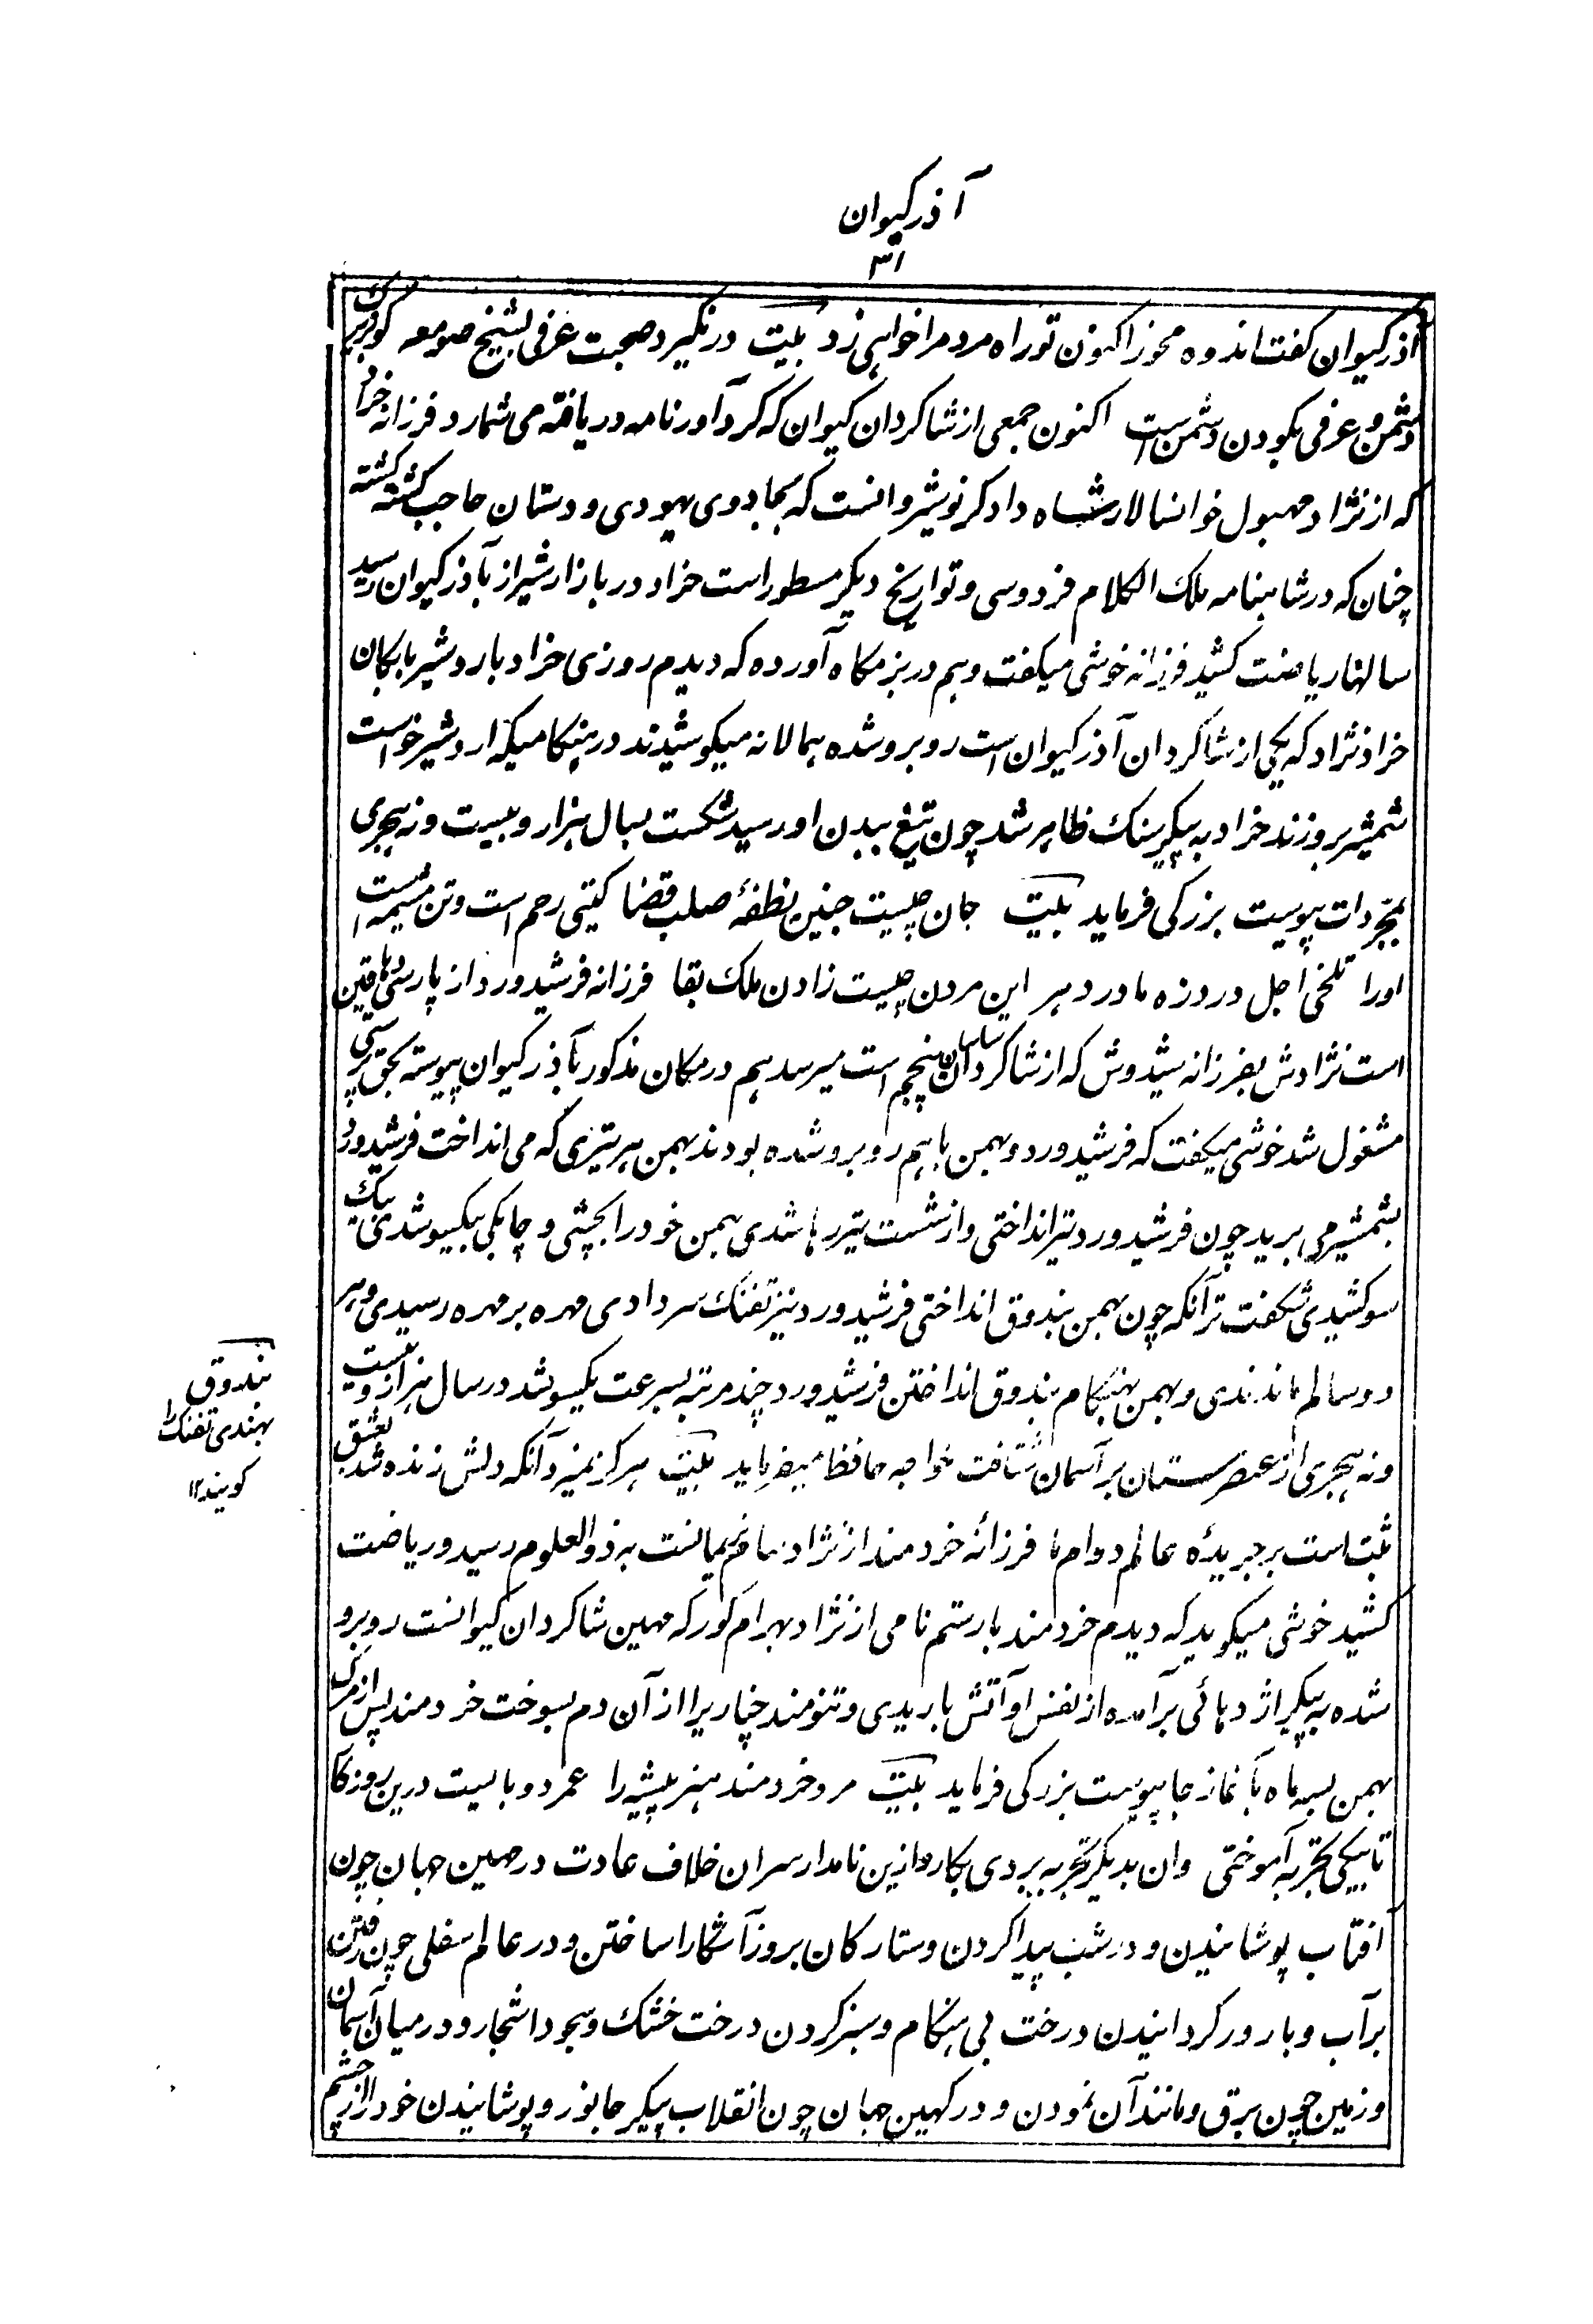 آذر کیوان
۳۱
آذر کیوان کفت اندوه مخور اکنون تو راه مردم را خواهی زد بیت در نکیرد صحبت عرفی بشیخ صومعه کو بزیرک
دشمن و عرفی بکودن دشمن است اکنون جمعی از شاکردان کیوان که کرد آور نامه دریافته می شمارد فرزانه خراد
که از نژاد مهبول خوانسالار شاه دادکر نوشیروانست که بجادوی یهودی و دستان حاجب کشته کشته
چنان که در شاهنامه ملک الکلام فردوسی و تواریخ دیکر مسطور است خراد در بازار شیراز بآذر کیوان رسید
سالها ریاضت کشید فرزانه خوشی میکفت و هم در بزمکاه آورده که دیدم روزی خراد با اردشیر بابکان
خراد نژاد که یکی از شاکردان آذر کیوان است روبرو شده همالانه میکوشیدند در هنکامیکه اردشیر خواست
شمشیر بر و زند خراد به پیکر سنک ظاهر شد چون تیغ ببدن او رسید شکست بسال هزار و بیست و نه هجری
بمجردات پیوست بزرکی فرماید بیت جان چیست جنین نطفهٔ صلب قضا کیتی رحم است و تن مشیمه است
او را تلخی اجل درد زه مادر دهر این مردن چیست زادن ملک بقا فرزانه فرشیدورد از پارسی دهاقین
است نژادش بفرزانه شیدوش که از شاکردان ساسان پنجم است میرسد هم در مکان مذکور بآذر کیوان پیوسته بحق پرستی
مشغول شد خوشی میکفت که فرشیدورد و بهمن با هم روبرو شده بودند بهمن هر تیری که می انداخت فرشیدورد
بشمشیر می برید چون فرشیدورد تیر انداختی و از شست تیر رها شدی بهمن خود را بچستی و چابکی بیکسو شدی بیک
سو کشیدی شکفت تر آنکه چون بهمن بندوق انداختی فرشیدورد نیز تفنک سر دادی مهره بر مهره رسیدی و هر
دو سالم ماندندی و بهمن بهنکام بندوق انداختن فرشیدورد چند مرتبه بسرعت یکسو شد در سال هزار و بیست
و نه هجری از عنصرستان بر آسمان شتافت خواجه حافظ میفرماید بیت هرکز نمیرد آنکه دلش زنده شد بعشق
ثبت است بر جریدهٔ عالم دوام ما فرزانهٔ خردمند از نژاد سام نریمانست به ذوالعلوم رسید و ریاضت
کشید خوشی میکوید که دیدم خردمند با رستم نامی از نژاد بهرام کور که مهین شاکردان کیوانست روبرو
شده به پیکر اژدهائی برآمده از نفس او آتش باریدی و تنومند چناریرا از آن دم بسوخت خردمند پس از مرک
بهمن بسه ماه بآغاز جا پیوست بزرکی فرماید بیت مرد خردمند هنر پیشه را عمر دو بایست درین روزکا
تا بیکی تجربه آموختی وان بدیکر تجربه بردی بکار و ازین نامدار سران خلاف عادت در مهین جهان چون
آفتاب پوشانیدن و در شب پیدا کردن و ستارکان بروز آشکارا ساختن و در عالم سفلی چون رفتن
بر آب و بارور کردانیدن درخت بی هنکام و سبز کردن درخت خشک و سجود اشجار و در میان آسمان
و زمین چون برق و مانند آن نمودن و در کهین جهان چون انقلاب پیکر جانور و پوشانیدن خود را از چشم
بندوق
بهندی تفنک را
کویند۱۲